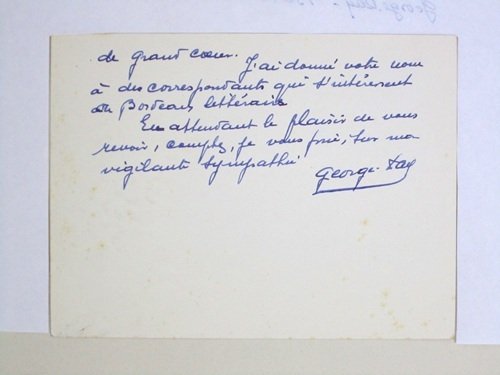 de grand cœur. J'ai donné votre nom
à des correspondants qui s'intéressent
au Bordeaux littéraire
En attendant le plaisir de vous
revoir, comptez, je vous prie, sur ma
vigilante sympathie
George